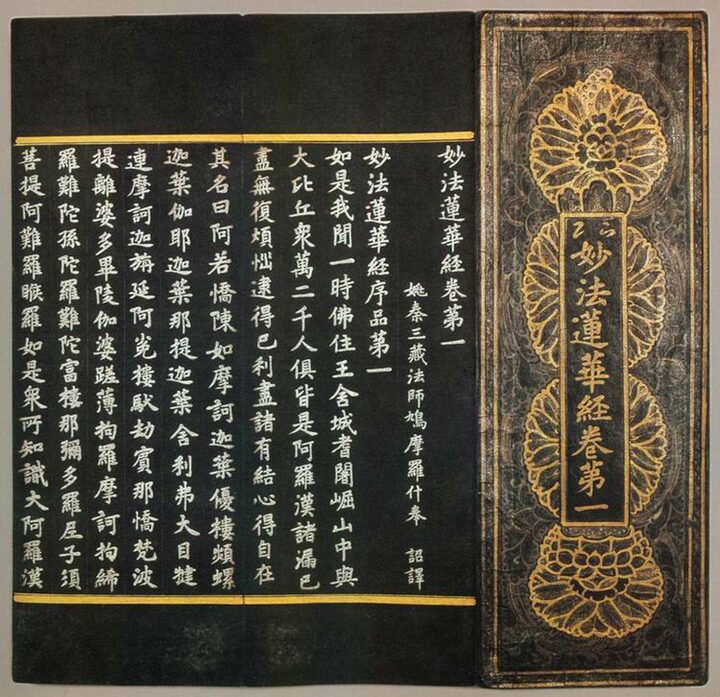 妙法蓮華経卷第一
妙法蓮華經卷第一
姚秦三藏法師鳩摩羅什奉 詔譯
妙法蓮華經序品第一
如是我聞一時佛住王舍城耆闍崛山中與
大比丘衆萬二千人俱皆是阿羅漢諸漏已
盡無復煩惱逮得已利盡諸有結心得自在
其名曰阿若憍陳如摩訶迦葉優樓頻螺
迦葉伽耶迦葉那提迦葉舍利弗大目犍
連摩訶迦旃延阿㝹樓馱劫賓那憍梵波
提離婆多畢陵伽婆蹉薄拘羅摩訶拘絺
羅難陀孫陀羅難陀富樓那彌多羅尼子須
菩提阿難羅睺羅如是衆所知識大阿羅漢